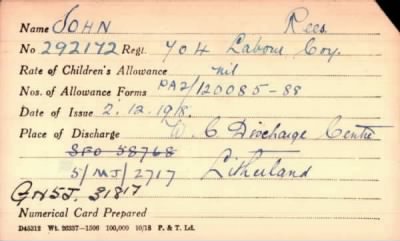 Name JOHN Rees
No 292172 Regt. 704 Labour Coy.
Rate of Children's Allowance nil
Nos. of Allowance Forms PA2/120085-88
Date of Issue 2.12.1918.
Place of Discharge W. C Discharge Centre
SFO 58768
5/MJ/2717 Litherland
31817
Numerical Card Prepared
D45312 Wt. 26337—1506 100,000 10/18 P. & T. Ld.